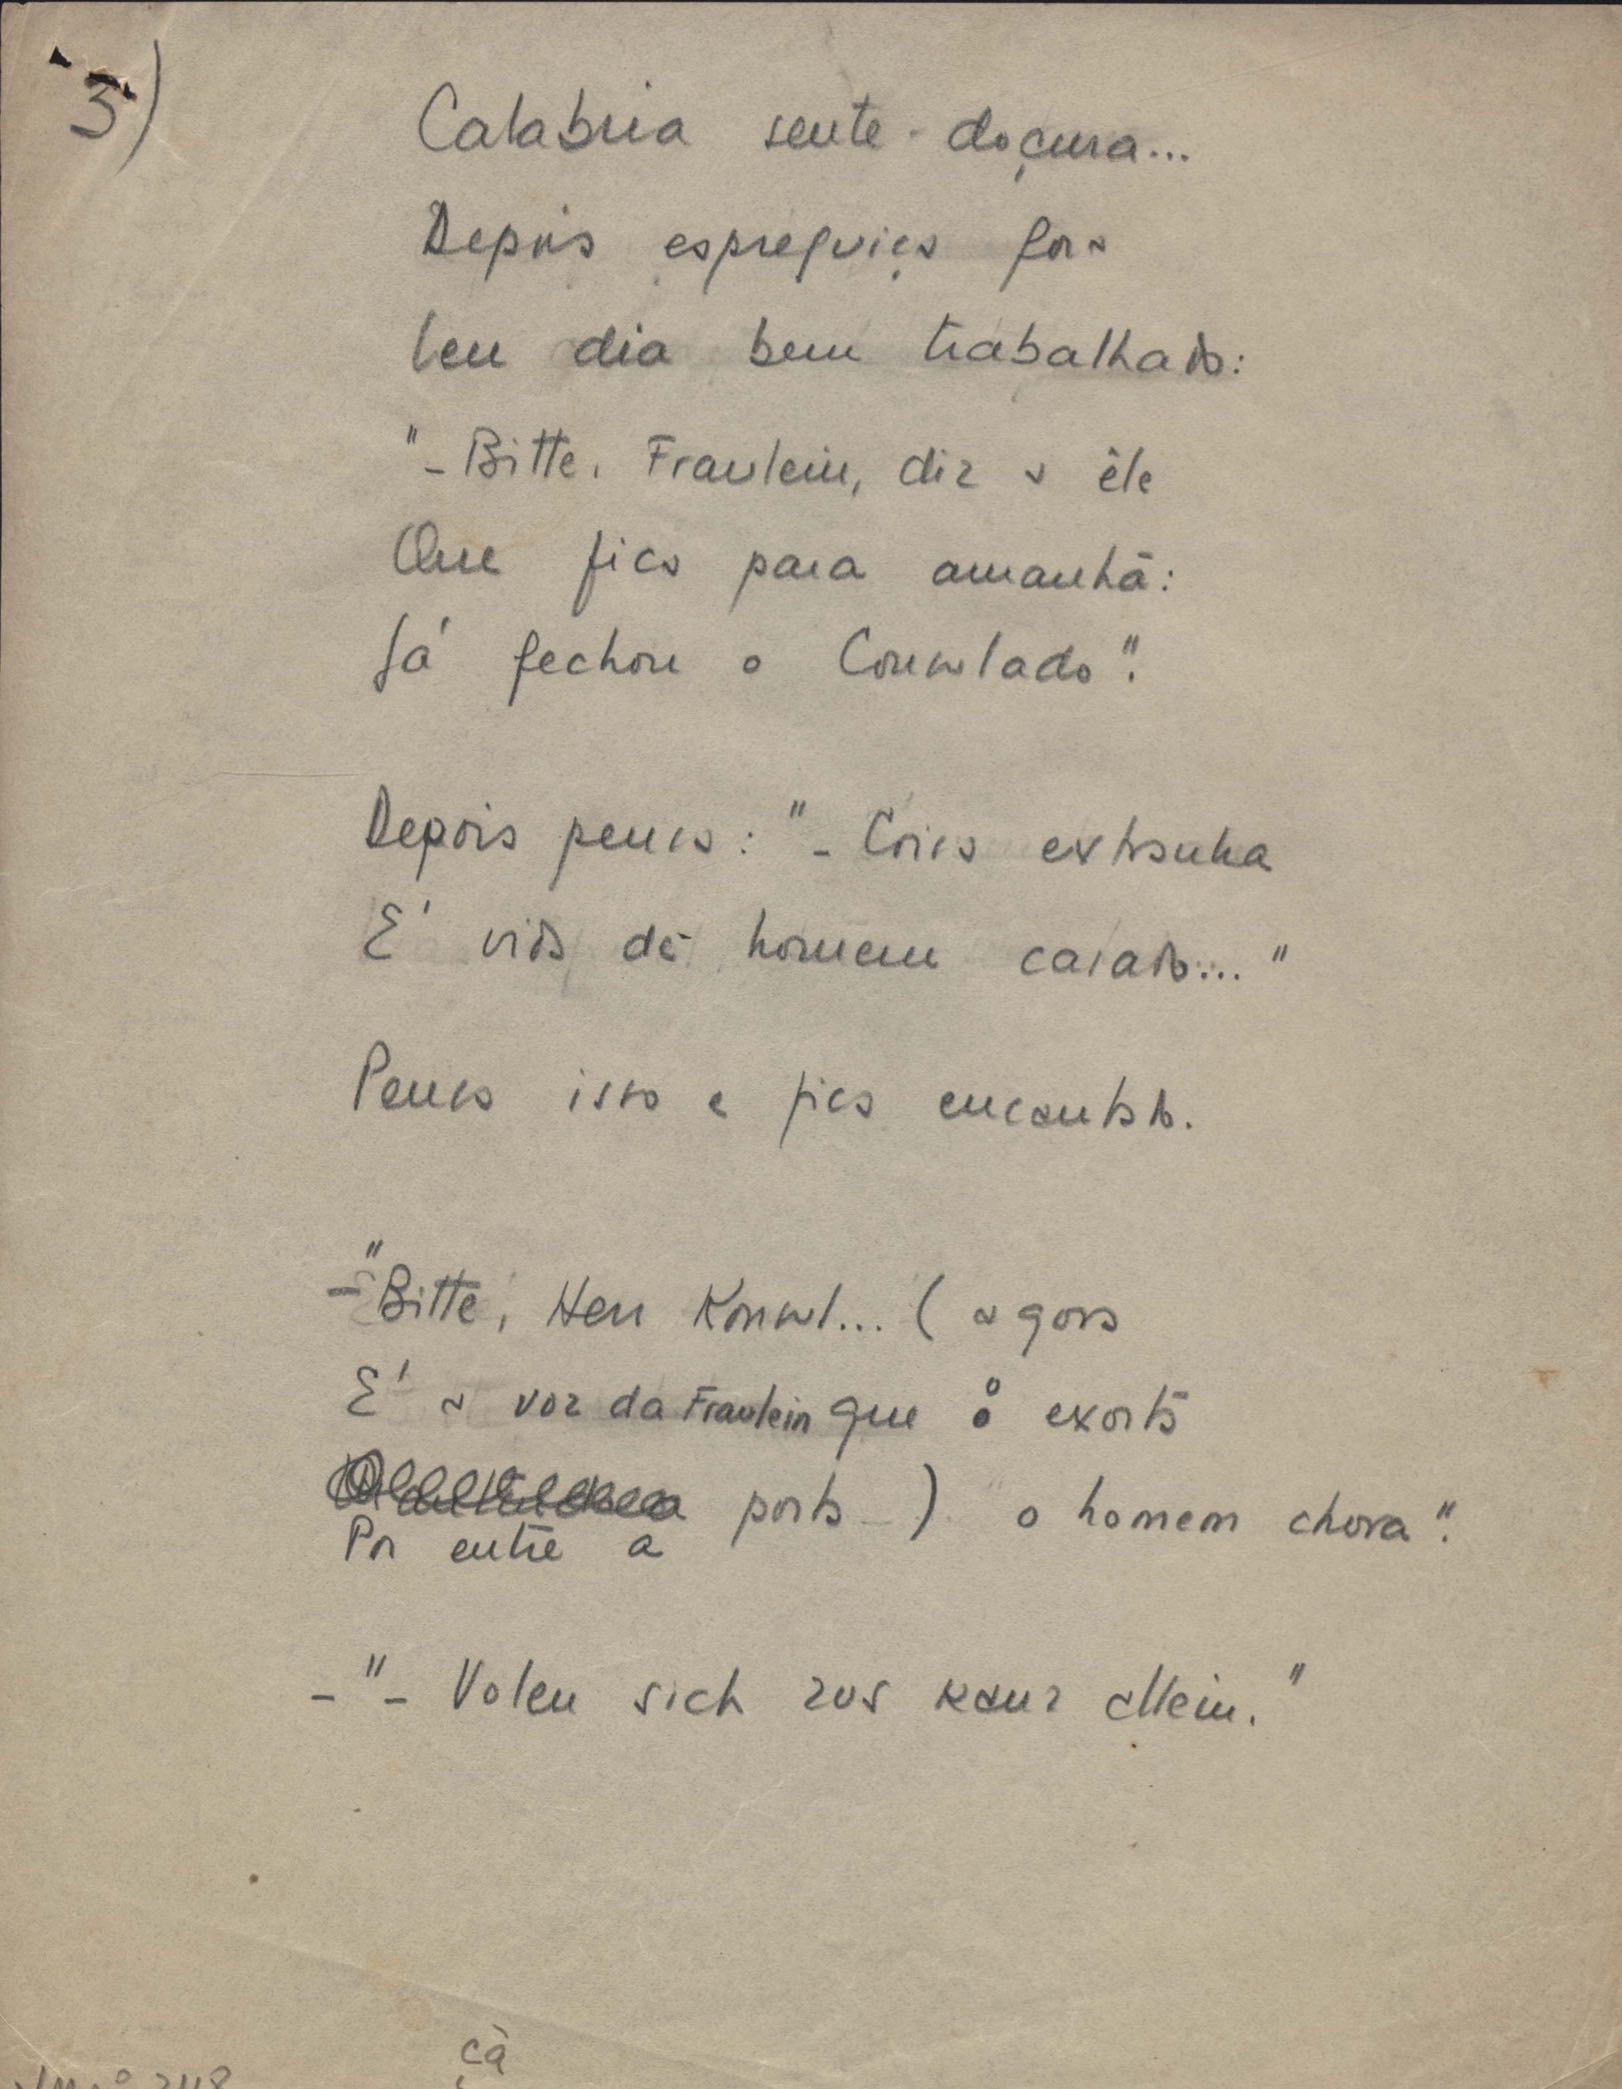 3)
Calabria sente doçura...
Depois espreguiça fora
Um dia bem trabalhado:
"- Bitte, Fraulein, diz a êle
Que fica para amanhã:
Já fechou o Consulado".
Depois pensa: "- Coisa extranha
E' vida de homem casado..."
Pensa isso e fica encantado.
-"Bitte, Herr Konsul... (agora
E' a voz da Fraulein que o exorta
porta ) o homem chora".
Por entre a
-"- Volen sich zus kanz allein."
çà